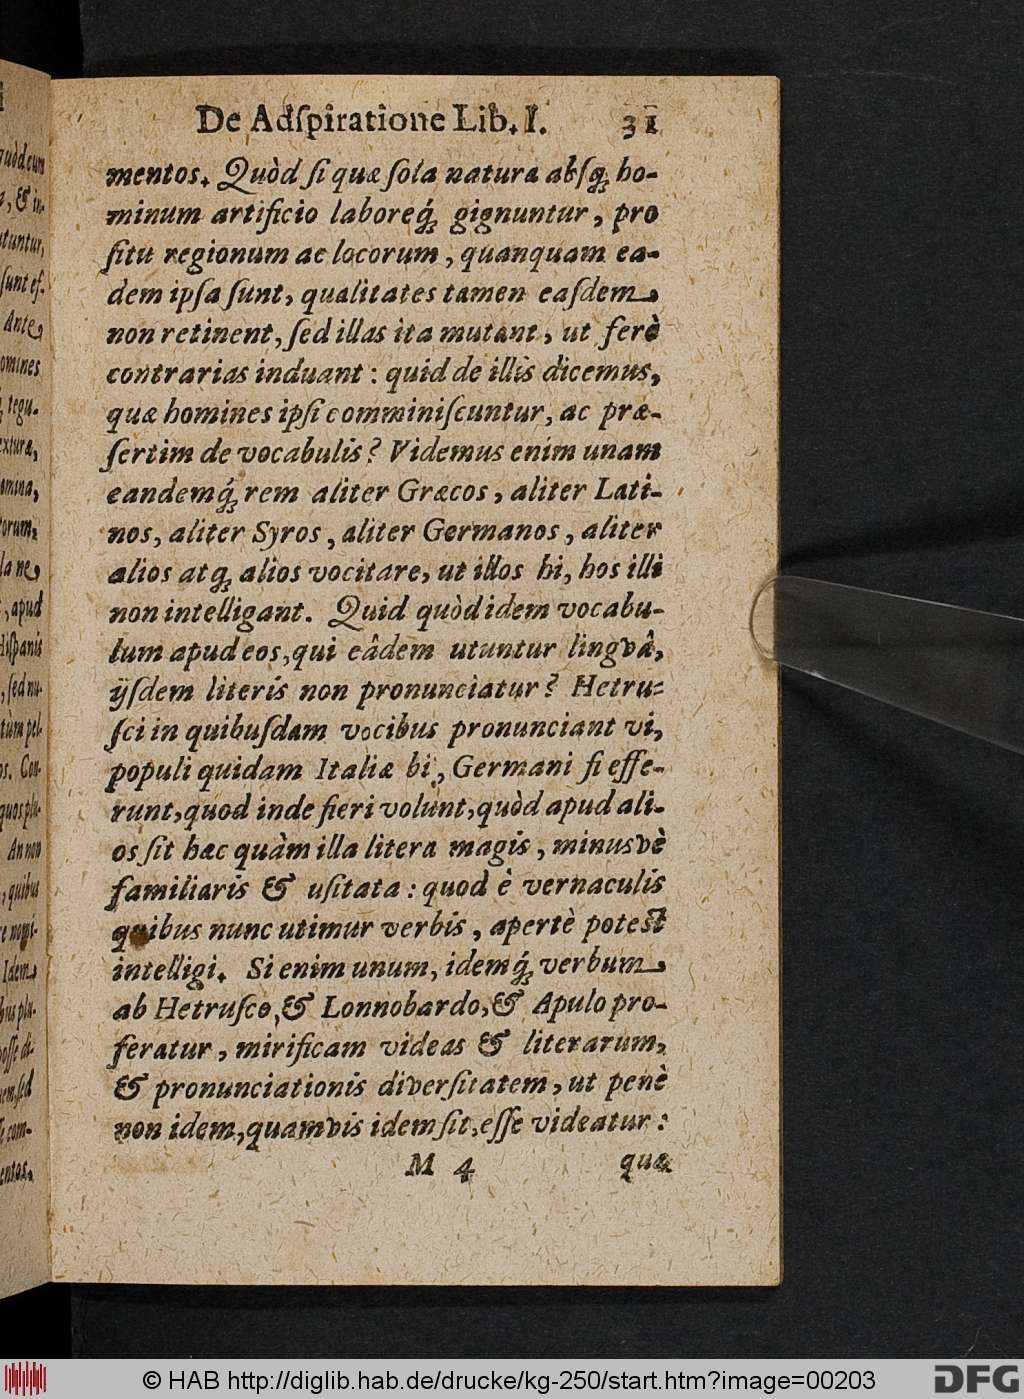 De Adſpiratione Lib. I. 31
mentos. Quòd ſi quæ ſola natura abſq́; ho-
minum artificio laboreq́; gignuntur, pro
ſitu regionum ac locorum, quanquam ea-
dem ipſa ſunt, qualitates tamen eaſdem
non retinent, ſed illas ita mutant, ut ferè
contrarias induant: quid de illis dicemus,
quæ homines ipſi comminiſcuntur, ac præ-
ſertim de vocabulis? Videmus enim unam
eandemq́; rem aliter Græcos, aliter Lati-
nos, aliter Syros, aliter Germanos, aliter
alios atq́; alios vocitare, ut illos hi, hos illi
non intelligant. Quid quòd idem vocabu-
lum apud eos, qui eâdem utuntur lingvâ,
ijſdem literis non pronunciatur? Hetru-
ſci in quibuſdam vocibus pronunciant vi,
populi quidam Italiæ bi, Germani fi effe-
runt, quod inde fieri volunt, quòd apud ali-
os ſit hæc quàm illa litera magis, minusvè
familiaris & uſitata: quod è vernaculis
quibus nunc utimur verbis, apertè poteſt
intelligi. Si enim unum, idemq́; verbum
ab Hetruſco, & Lonnobardo, & Apulo pro-
feratur, mirificam videas & literarum,
& pronunciationis diverſitatem, ut penè
non idem, quamvis idem ſit, eſſe videatur:
M 4 quæ
© HAB http://diglib.hab.de/drucke/kg-250/start.htm?image=00203
DFG